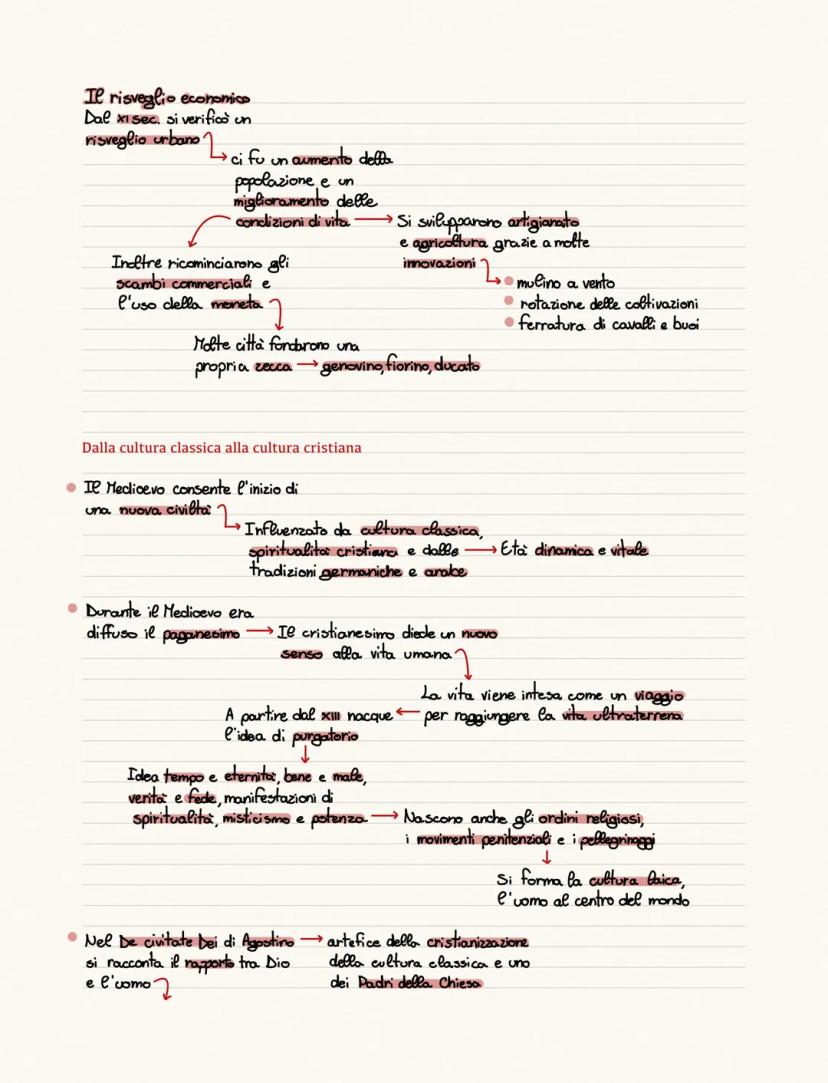 Il risveglio economico
Dal XI sec. si verificò un
risveglio urbano
ci fu un aumento della
popolazione e un
miglioramento delle
condizioni di vita → Si svilupparono artigianato
e agricoltura grazie a molte
innovazioni
Inoltre ricominciarono gli
scambi commerciali e
l'uso della moneta
mulino a vento
rotazione delle coltivazioni
ferratura di cavalli e buoi
Molte città fondarono una
propria zecca → genovino, fiorino, ducato
Dalla cultura classica alla cultura cristiana
Il Medioevo consente l'inizio di
una nuova civiltà
Influenzata da cultura classica,
spiritualità cristiana e dalle → Età dinamica e vitale
tradizioni germaniche e arabe
Durante il Medioevo era
diffuso il paganesimo → Il cristianesimo diede un nuovo
senso alla vita umana
La vita viene intesa come un viaggio
per raggiungere la vita ultraterrena
A partire dal XIII nacque
l'idea di purgatorio
Idea tempo e eternità, bene e male,
verità e fede, manifestazioni di
spiritualità, misticismo e potenza → Nascono anche gli ordini religiosi,
i movimenti penitenziali e i pellegrinaggi
Si forma la cultura laica,
l'uomo al centro del mondo
Nel De civitate Dei di Agostino → artefice della cristianizzazione
si racconta il rapporto tra Dio
e l'uomo
della cultura classica e uno
dei Padri della Chiesa